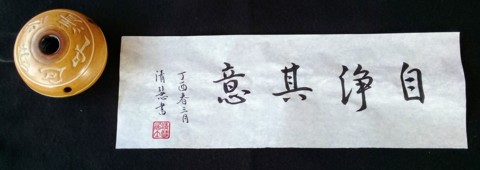 自淨其意
丁酉春三月
清慧書